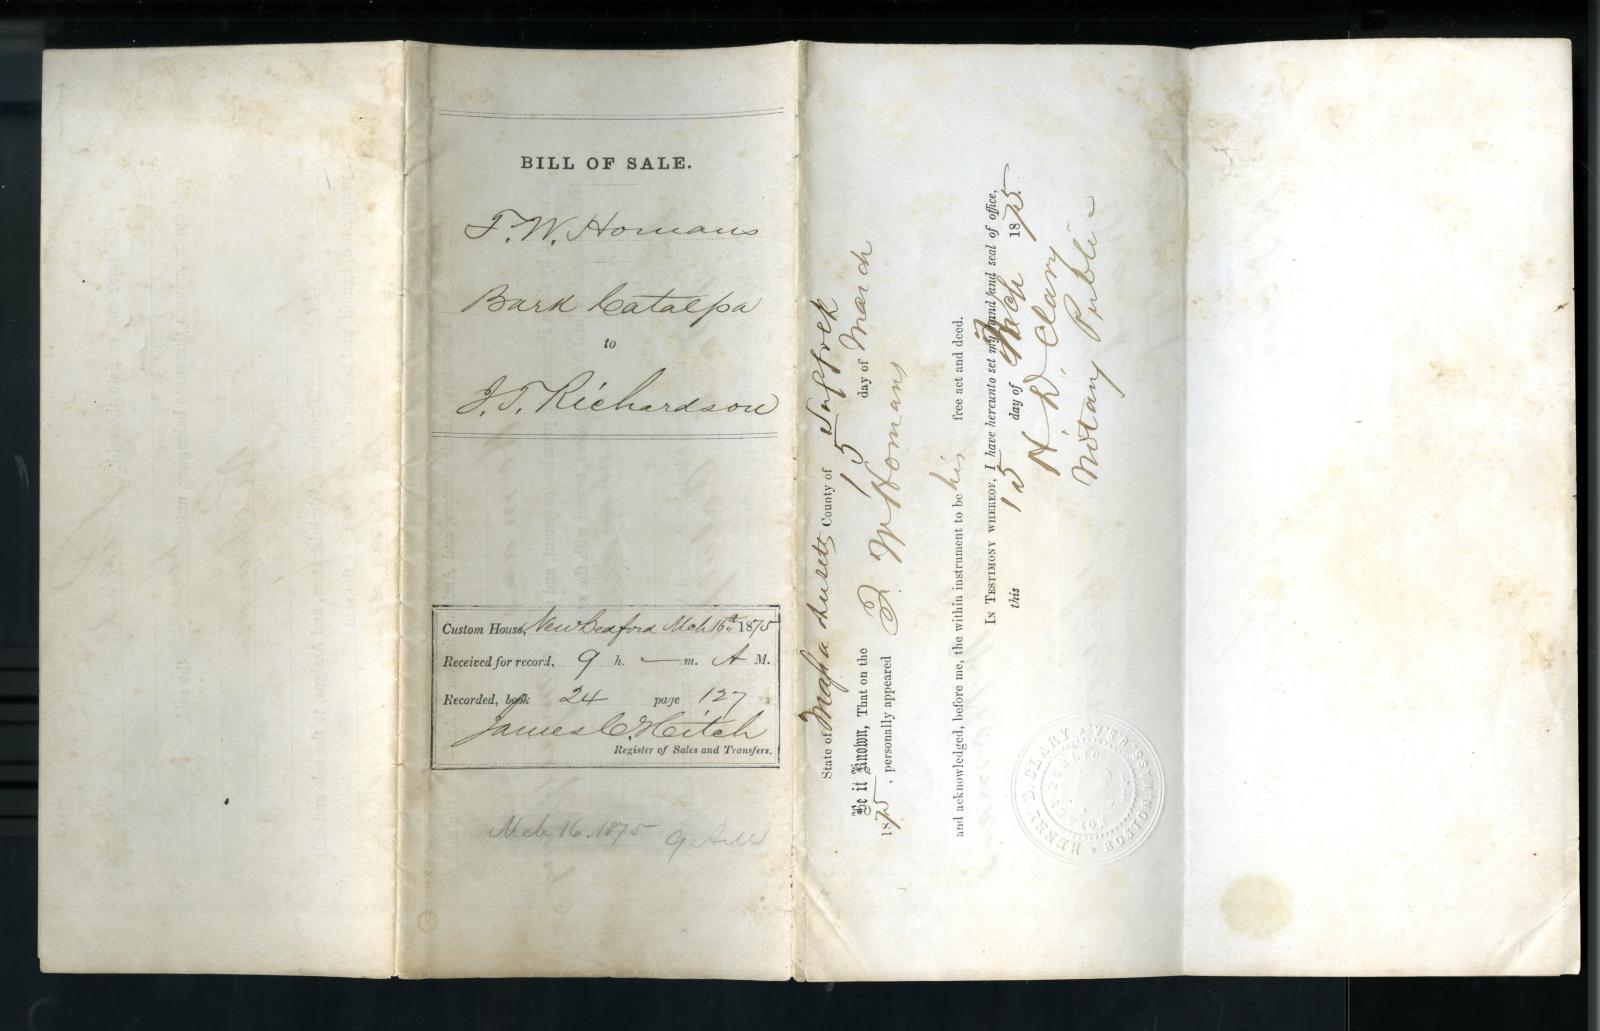 BILL OF SALE.
F. W. Homans
Bark Catalpa
to
J. T. Richardson
Custom House, New Bedford Mch 16th 1875
Received for record, 9 h. — m. A M.
Recorded, book 24 page 127
James C. Hitch
Register of Sales and Transfers.
Mch 16. 1875 9 AM
State of Massachusetts County of Suffolk
Be it Known, That on the 15 day of March
1875, personally appeared F. W Homans
and acknowledged, before me, the within instrument to be his free act and deed.
In Testimony whereof, I have hereunto set my hand and seal of office,
this 15 day of Mch 1875.
H D. Clary
Notary Public
HENRY D. CLARY
NOTARY PUBLIC
BOSTON, MASSACHUSETTS